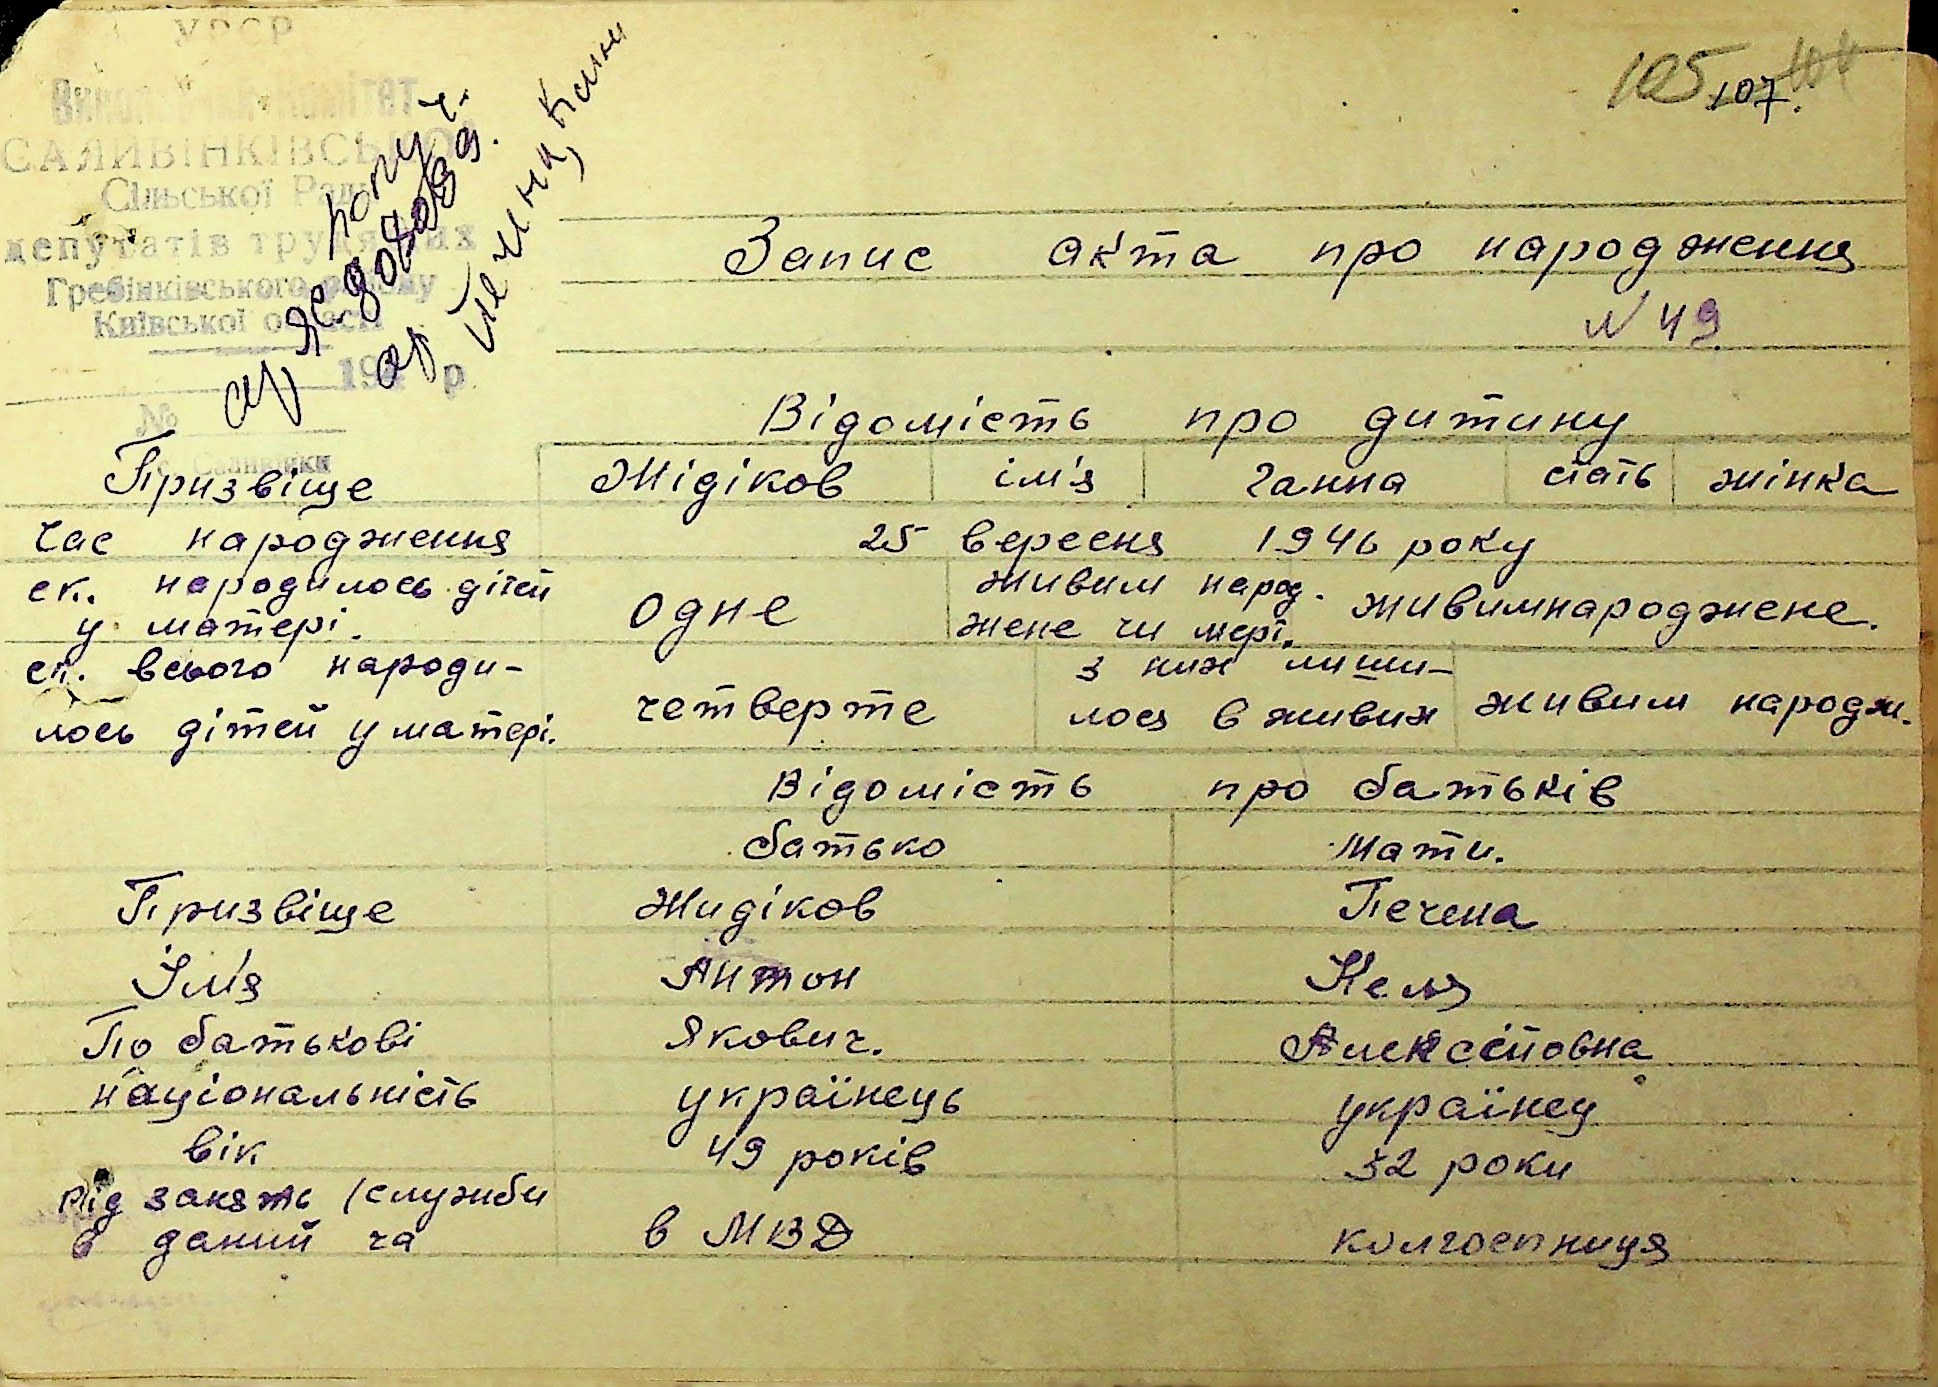 УРСР
Виконавчий комітет
САЛИВІНКІВСЬКОЇ
Сільської Ради
депутатів трудящих
Гребінківського району
Київської області
194 р.
№
с. Саливінки
105 107.
Запис акта про народження
N 49
Відомість про дитину
Призвіще Жідіков ім'я Ганна стать жінка
Час народження 25 вересня 1946 року
ск. народилось дітей у матері. одне живим народ-жене чи мерт. живимнароджене.
ск. всього народи-лось дітей у матері. четверте з них лиши-лося в живих живим народж.
Відомість про батьків
батько мати.
Призвіще Жидіков Печена
Ім'я Антон Келя
По батькові Якович. Алексєйовна
національність українець українец
вік 49 років 32 роки
Рід занять (служби в даний ча в МВД колгоспниця